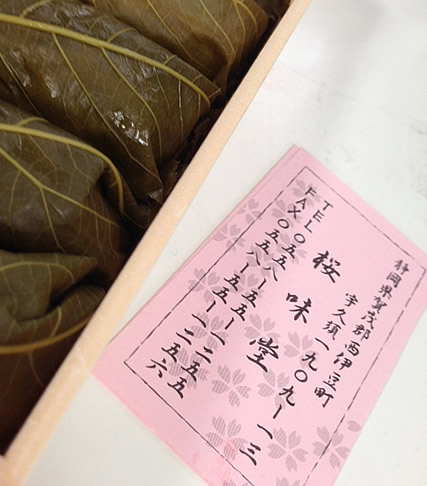 静岡県賀茂郡西伊豆町
宇久須一九〇九ー一三
桜味堂
TEL〇五五八ー五五ー一二五五
FAX〇五五八ー五五ー一二五六